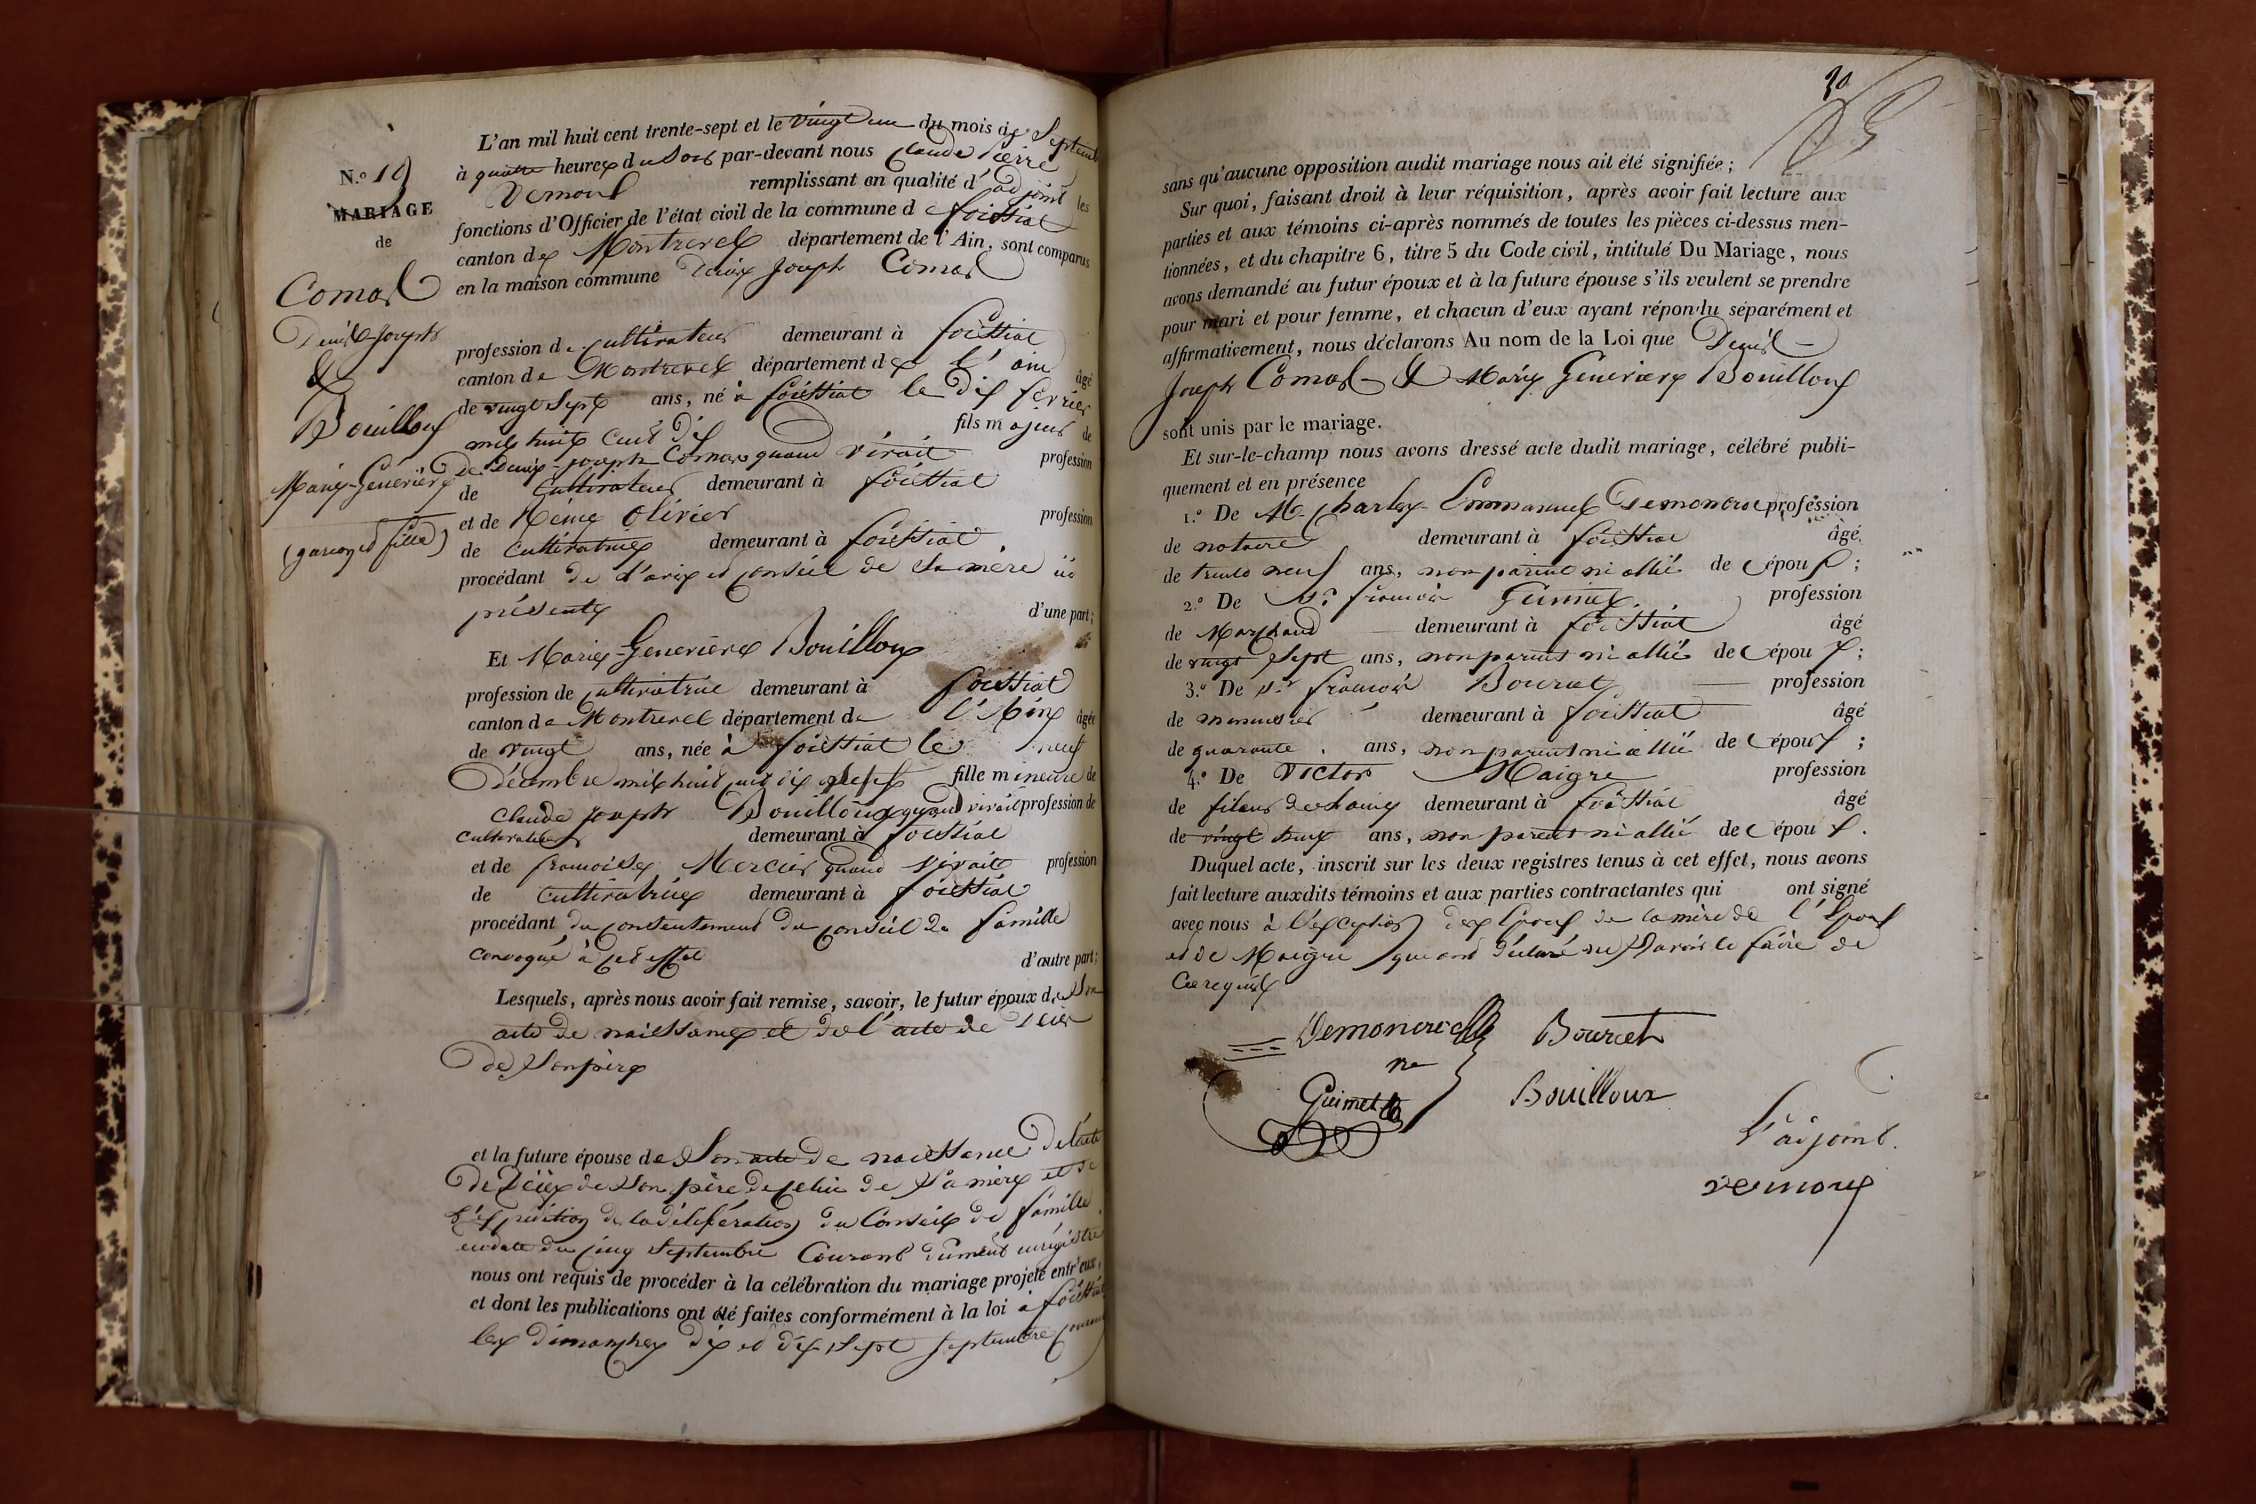 N.º 19
MARIAGE
de
Comas
Denis Joseph
&
Bouilloux
Marie-Geneviève
(garçon et fille)
L'an mil huit cent trente-sept et le vingt un du mois de Septembre
à quatre heures du Soir par-devant nous Claude Pierre
Vemoux remplissant en qualité d'adjoint les
fonctions d'Officier de l'état civil de la commune d foissiat
canton de Montrevel département de l'Ain, sont comparus
en la maison commune Denis Joseph Comas
profession de Cultivateur demeurant à foissiat
canton de Montrevel département de l'ain âgé
de vingt Sept ans, né à foissiat le dix février
mil huit Cent dix fils majeur de
De Denis-joseph Comas quand vivait profession
de Cultivateur demeurant à foissiat
et de Reine Olivier profession
de cultivatrice demeurant à foissiat
procédant de l'avis et conseil de Sa mère ici
présente d'une part;
Et Marie-Geneviève Bouilloux
profession de cultivatrice demeurant à foissiat
canton de Montrevel département de l'Ain âgée
de vingt ans, née à foissiat le neuf
Décembre mil huit cent dix sept fille mineure de
Claude joseph Bouilloux quand vivait profession de
Cultivateur demeurant à foissiat
et de françoise Mercier quand vivait profession
de cultivatrice demeurant à foissiat
procédant du consentement du conseil de famille
convoqué à cet effet d'autre part;
Lesquels, après nous avoir fait remise, savoir, le futur époux de Son
acte de naissance et de l'acte de décès
de Son père
et la future épouse de Son acte de naissance De l'acte
De Décès de Son père De celui de Sa mère et de
l'expédition de la délibération du Conseil de famille
en date du cinq Septembre Courant dûment enregistré
nous ont requis de procéder à la célébration du mariage projeté entr'eux,
et dont les publications ont été faites conformément à la loi à foissiat
les dimanches dix et dix Sept Septembre courant
30
sans qu'aucune opposition audit mariage nous ait été signifiée;
Sur quoi, faisant droit à leur réquisition, après avoir fait lecture aux
parties et aux témoins ci-après nommés de toutes les pièces ci-dessus men-
tionnées, et du chapitre 6, titre 5 du Code civil, intitulé Du Mariage, nous
avons demandé au futur époux et à la future épouse s'ils veulent se prendre
pour mari et pour femme, et chacun d'eux ayant répondu séparément et
affirmativement, nous déclarons Au nom de la Loi que Denis
Joseph Comas & Marie Geneviève Bouilloux
sont unis par le mariage.
Et sur-le-champ nous avons dressé acte dudit mariage, célébré publi-
quement et en présence
1.º De M. Charles Emmanuel profession
de notaire demeurant à foissiat âgé
de trente neuf ans, non parent ni allié de l'époux;
2.º De Sr. françois Guimet profession
de Marchand demeurant à foissiat âgé
de vingt Sept ans, non parent ni allié de l'époux;
3.º De Sr françois Bourcet profession
de menuisier demeurant à foissiat âgé
de quarante ans, non parent ni allié de l'époux;
4.º De Victor Maigre profession
de fileur de laine demeurant à foissiat âgé
de vingt deux ans, non parent ni allié de l'époux.
Duquel acte, inscrit sur les deux registres tenus à cet effet, nous avons
fait lecture auxdits témoins et aux parties contractantes qui ont signé
avec nous à l'exception de l'époux de la mère de l'Epoux
et de Maigre qui ont déclaré ne Savoir le faire de
Ce requis
Bourcet
Guimet
Bouilloux
L'adjoint.